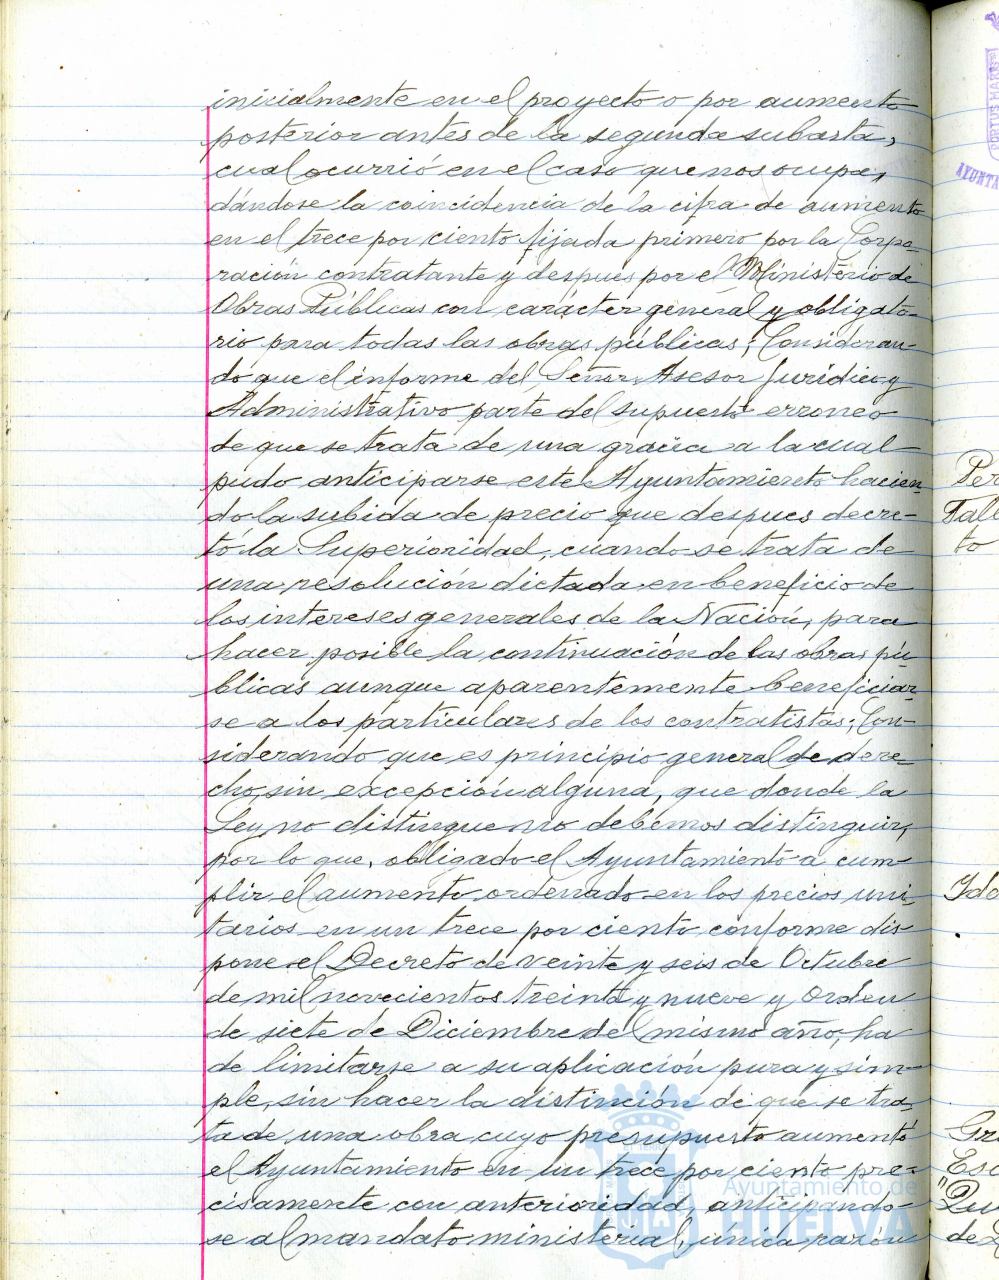 inicialmente en el proyecto o por aumento
posterior antes de la segunda subasta,
cual ocurrió en el caso que nos ocupa,
dándose la coincidencia de la cifra de aumento
en el trece por ciento fijada primero por la Corpo-
ración contratante y despues por el Ministerio de
Obras Públicas con carácter general y obligato-
rio para todas las obras públicas; Consideran-
do que el informe del Señor Asesor Jurídico y
Administrativo parte del supuesto erroneo
de que se trata de una gracia a la cual
pudo anticiparse este Ayuntamiento hacien-
do la subida de precio que despues decre-
tó la Superioridad, cuando se trata de
una resolución dictada en beneficio de
los intereses generales de la Nación, para
hacer posible la continuación de las obras pú-
blicas aunque aparentemente beneficiar-
se a los particulares de los contratistas; Con-
siderando que es principio general de dere-
cho, sin excepción alguna, que donde la
Ley no distingue no debemos distinguir,
por lo que, obligado el Ayuntamiento a cum-
plir el aumento ordenado en los precios uni-
tarios en un trece por ciento conforme dis-
pone el Decreto de veinte y seis de Octubre
de mil novecientos treinta y nueve y Orden
de siete de Diciembre del mismo año, ha
de limitarse a su aplicación pura y sim-
ple, sin hacer la distinción de que se tra-
ta de una obra cuyo presupuesto aumentó
el Ayuntamiento en un trece por ciento pre-
cisamente con anterioridad, anticipando-
se al mandato ministerial, única razón
Ayuntamiento de
HUELVA